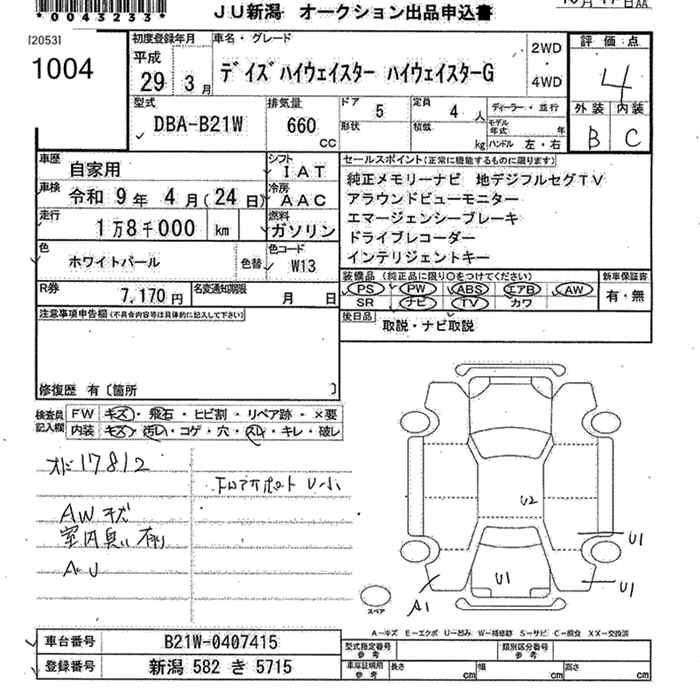 *0043233*
JU新潟 オークション出品申込書
[2053]
1004
初度登録年月
平成
29年 3月
車名・グレード
デイズハイウェイスター ハイウェイスターG
2WD
・
4WD
評価点
4
外装 内装
B C
型式
DBA-B21W
排気量
660 CC
ドア 5
定員 4 人
形状
積載 kg
ディーラー・並行
モデル年式 年
ハンドル 左・右
車歴
自家用
シフト
IAT
車検
令和 9年 4月(24日)
冷房
AAC
走行
1万8千000 km
燃料
ガソリン
色
ホワイトパール
色替
色コード
W13
R券
7,170円
名変通知期限
月 日
セールスポイント(正常に機能するものに限ります)
純正メモリーナビ 地デジフルセグTV
アラウンドビューモニター
エマージェンシーブレーキ
ドライブレコーダー
インテリジェントキー
装備品(純正品に限り○をつけてください)
PS PW ABS エアB AW
SR ナビ TV カワ
新車保証書
有・無
後日品
取説・ナビ取説
注意事項申告欄(不具合内容等は具体的に記入して下さい)
修復歴 有〔箇所 〕
検査員記入欄
FW キズ・飛石・ヒビ割・リペア跡・×要
内装 キズ・汚レ・コゲ・穴・スレ・キレ・破レ
オド17812
フロアサポート U小
AWキズ
室内臭い有り
AU
U2
U1
U1
U1
A1
スペア
A-キズ E-エクボ U-凹ミ W-補修跡 S-サビ C-腐食 XX-交換済
車台番号
B21W-0407415
登録番号
新潟 582 き 5715
型式指定番号
参考
類別区分番号
参考
車庫証明用
参考
長さ cm
幅 cm
高さ cm